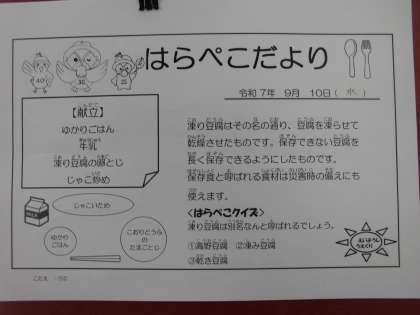 はらぺこだより
令和7年 9月 10日（水）
【献立】
ゆかりごはん
牛乳
凍り豆腐の卵とじ
じゃこ炒め
凍り豆腐はその名の通り、豆腐を凍らせて
乾燥させたものです。保存できない豆腐を
長く保存できるようにしたものです。
保存食と呼ばれる食材は災害時の備えにも
使えます。
＜はらぺこクイズ＞
凍り豆腐は別名なんと呼ばれるでしょう。
①高野豆腐 ②凍み豆腐
③乾き豆腐
じゃこいため
ゆかり
ごはん
こおりどうふ
の
たまごとじ